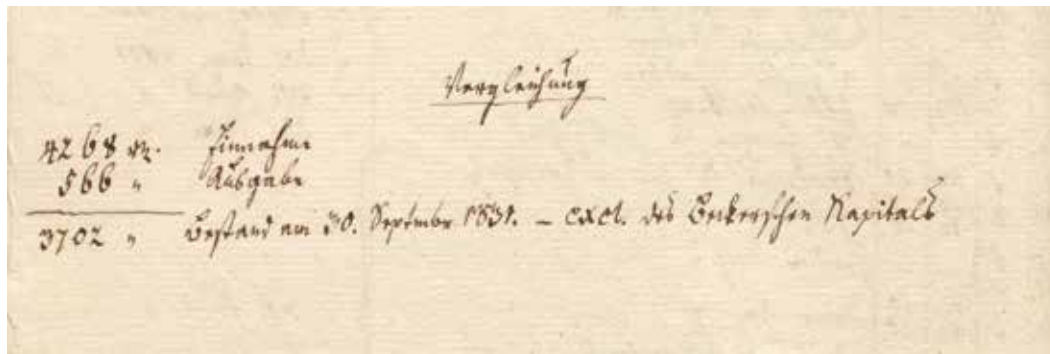 Vergleichung
4268 rt. Einnahme
566 " Ausgabe
3702 " Bestand am 30. September 1831. – excl. des Beckerschen Kapitals